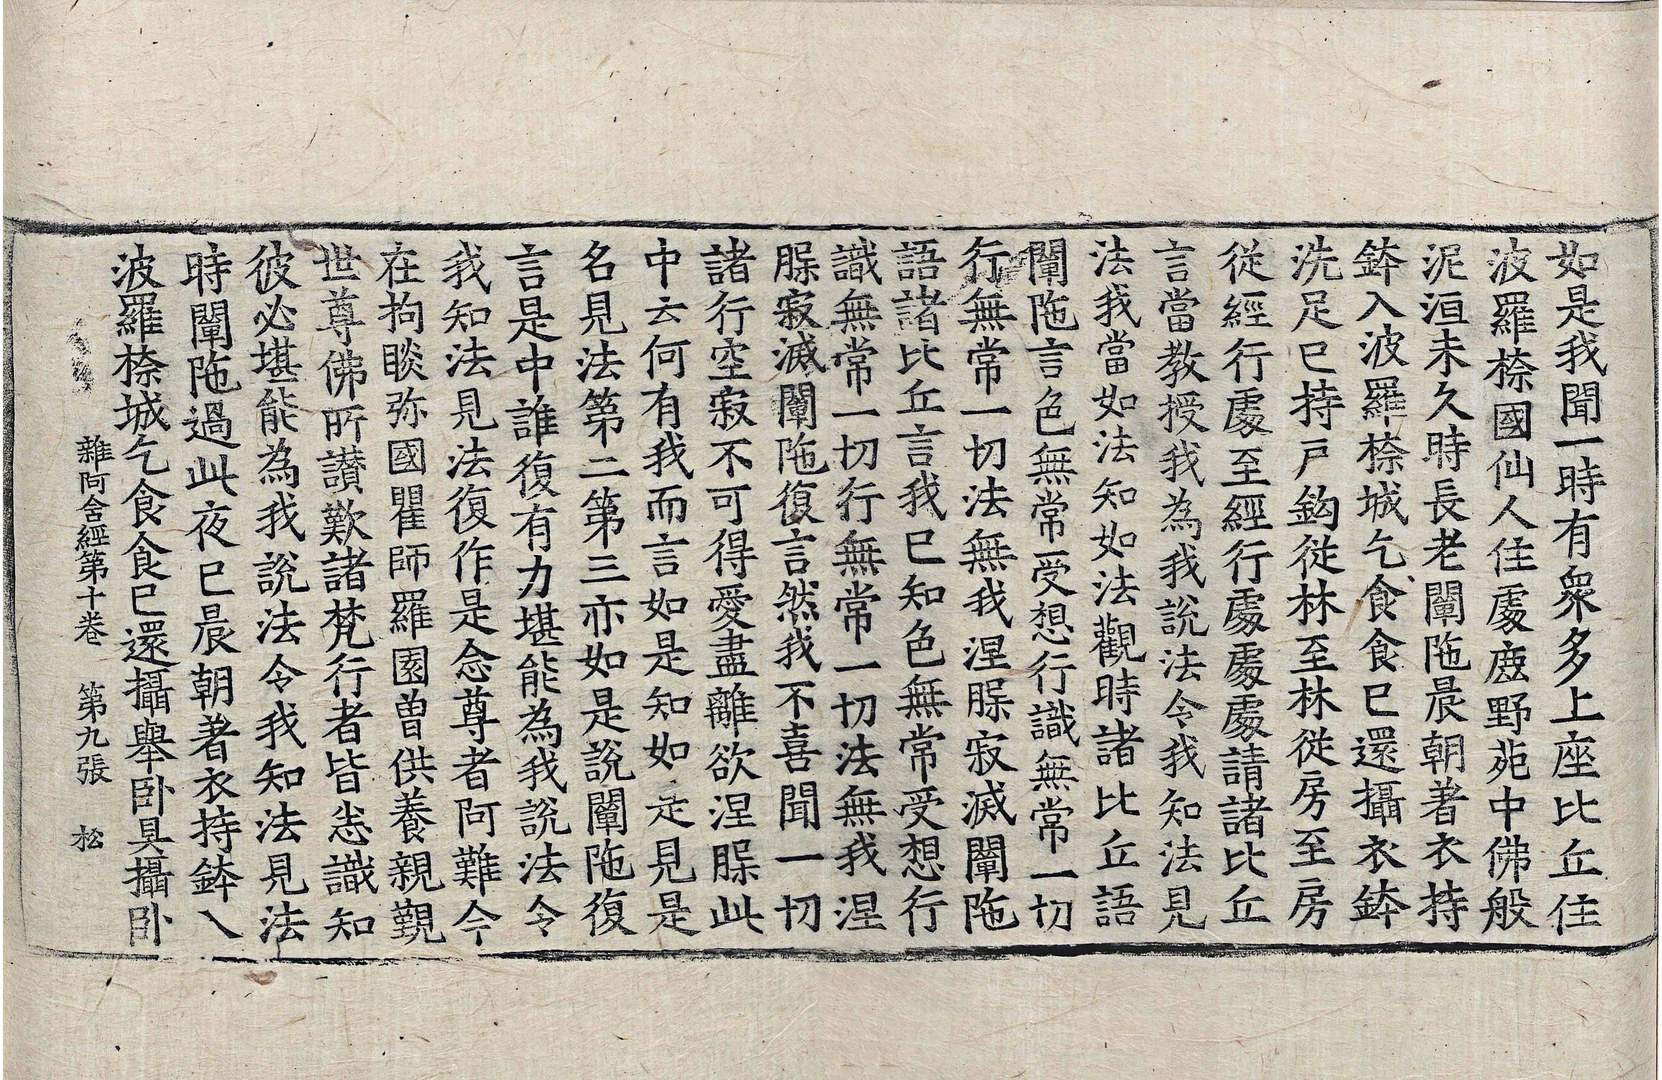 如是我聞一時有衆多上座比丘住
波羅㮈國仙人住處鹿野苑中佛般
泥洹未久時長老闡陁晨朝著衣持
鉢入波羅㮈城乞食食已還攝衣鉢
洗足已持戶鉤從林至林從房至房
從經行處至經行處處處請諸比丘
言當教授我為我說法令我知法見
法我當如法知如法觀時諸比丘語
闡陁言色無常受想行識無常一切
行無常一切法無我涅槃寂滅闡陁
語諸比丘言我已知色無常受想行
識無常一切行無常一切法無我涅
槃寂滅闡陁復言然我不喜聞一切
諸行空寂不可得愛盡離欲涅槃此
中云何有我而言如是知如是見是
名見法第二第三亦如是說闡陁復
言是中誰復有力堪能為我說法令
我知法見法復作是念尊者阿難今
在拘睒弥國瞿師羅園曾供養親覲
世尊佛所讃歎諸梵行者皆悉識知
彼必堪能為我說法令我知法見法
時闡陁過此夜已晨朝著衣持鉢入
波羅㮈城乞食食已還攝舉卧具攝卧
雜阿含經第十卷 第九張 松